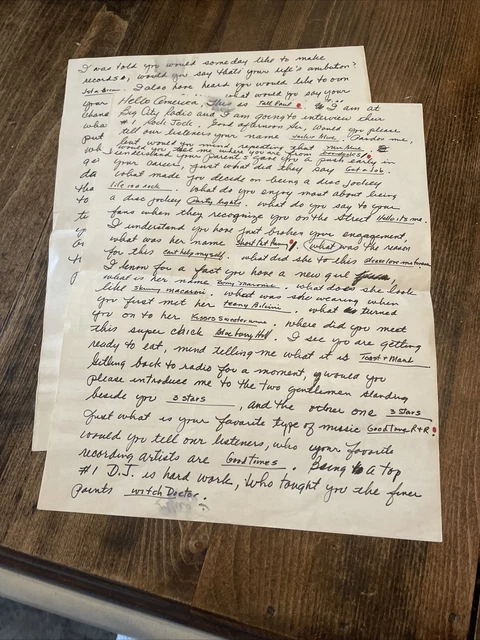 I was told you would someday like to make
records, would you say thats your life's ambition?
I also have heard you would like to own
what would you say your
Hello America, This is Tall Paul. I am at
Big City Radio and I am going to interview their
# 1 Sock Jock. Good afternoon Sir, Would you please
tell our listeners your name Pardon me,
but would you mind repeating that Mr. Blue
would you tell me where you are from
understand your parents gave you a push early in
your career, just what did they say Get a Job.
what made you decide on being a disc jockey
life is a rock. What do you enjoy most about being
a disc jockey Party lights. what do you say to your
fans when they recognize you on the street Hello its me.
I understand you have just broken your engagement,
what was her name Short Fat Fanny. What was the reason
for this Cant help myself. what did she to this
I know for a fact you have a new girl
what is her name Bony Maronie. what does she look
like skinny macaroni. what was she wearing when
you first met her teeny bikini, what turned
you on to her Kisses Sweeter wine. where did you meet
this super chick Blueberry Hill. I see you are getting
ready to eat, mind telling me what it is Toast + Marm
Getting back to radio for a moment, would you
please introduce me to the two gentleman standing
beside you 3 Stars, and the other one 3 Stars
Just what is your favorite type of music Good Time R+R.
would you tell our listeners, who your favorite
recording artists are Good Times. Being a top
#1 D.J. is hard work, Who taught you the finer
points witch Doctor.